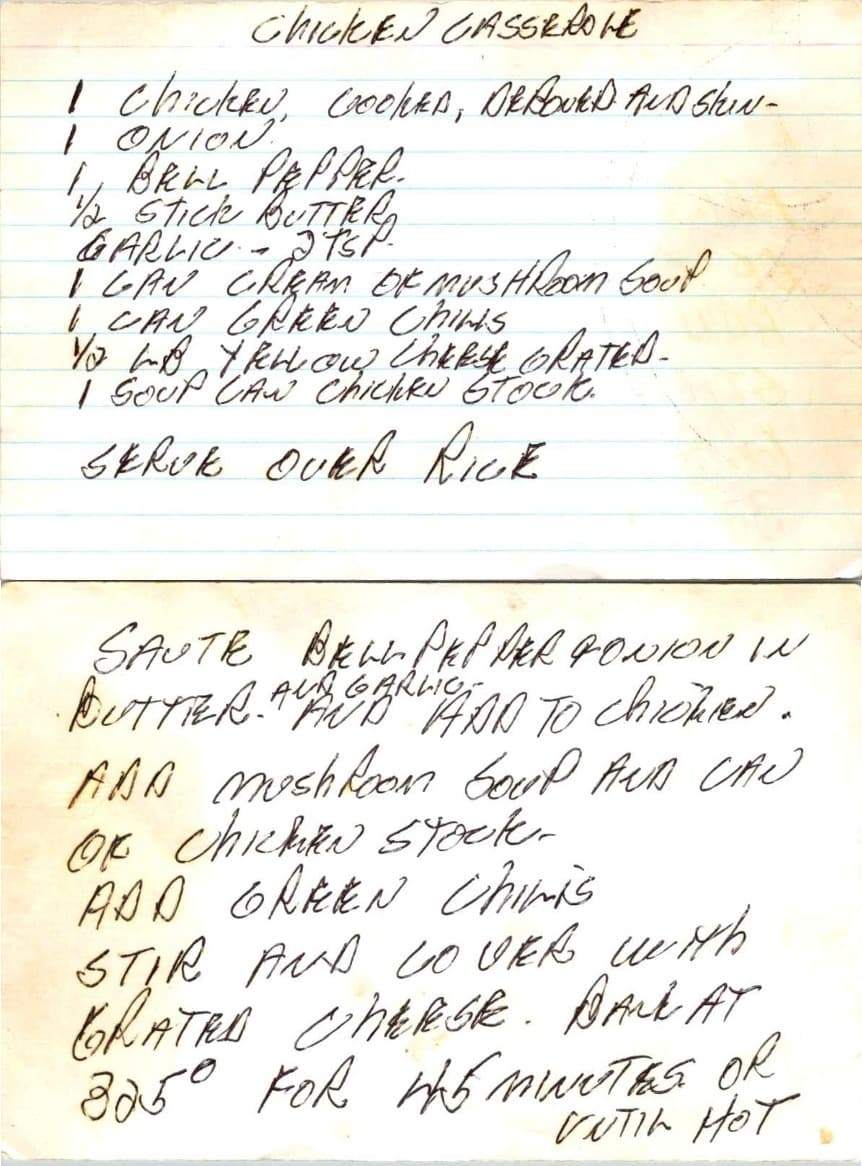 CHICKEN CASSEROLE
1 CHICKEN, COOKED, DEBONED AND SKIN-
1 ONION
1 BELL PEPPER.
1/2 STICK BUTTER
GARLIC - 2 TSP.
1 CAN CREAM OF MUSHROOM SOUP
1 CAN GREEN CHILIS
1/2 LB YELLOW CHEESE GRATED-
1 SOUP CAN CHICKEN STOCK.
SERVE OVER RICE
SAUTE BELL PEPPER & ONION IN
AND GARLIC-
BUTTER. AND ADD TO CHICKEN.
ADD MUSHROOM SOUP AND CAN
OF CHICKEN STOCK-
ADD GREEN CHILIS
STIR AND COVER WITH
GRATED CHEESE. BAKE AT
325° FOR 45 MINUTES OR
UNTIL HOT